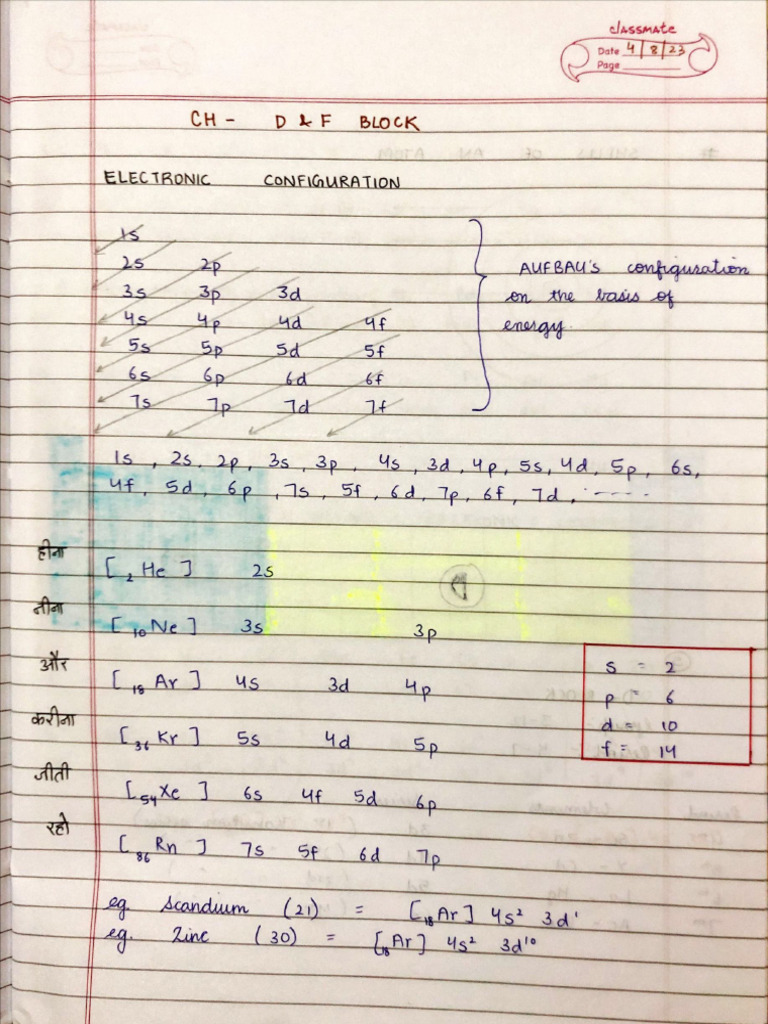 classmate
Date 4 8 23
Page
CH - D & F BLOCK
ELECTRONIC CONFIGURATION
1s
2s 2p
3s 3p 3d
4s 4p 4d 4f
5s 5p 5d 5f
6s 6p 6d 6f
7s 7p 7d 7f
AUFBAU'S configuration
on the basis of
energy.
1s, 2s, 2p, 3s, 3p, 4s, 3d, 4p, 5s, 4d, 5p, 6s,
4f, 5d, 6p, 7s, 5f, 6d, 7p, 6f, 7d, ------
हीना [₂He] 2s
नीना [₁₀Ne] 3s 3p
और [₁₈Ar] 4s 3d 4p
करीना [₃₆Kr] 5s 4d 5p
जीती [₅₄Xe] 6s 4f 5d 6p
रहो [₈₆Rn] 7s 5f 6d 7p
s = 2
p = 6
d = 10
f = 14
eg. Scandium (21) = [₁₈Ar] 4s² 3d¹
eg. Zinc (30) = [₁₈Ar] 4s² 3d¹⁰